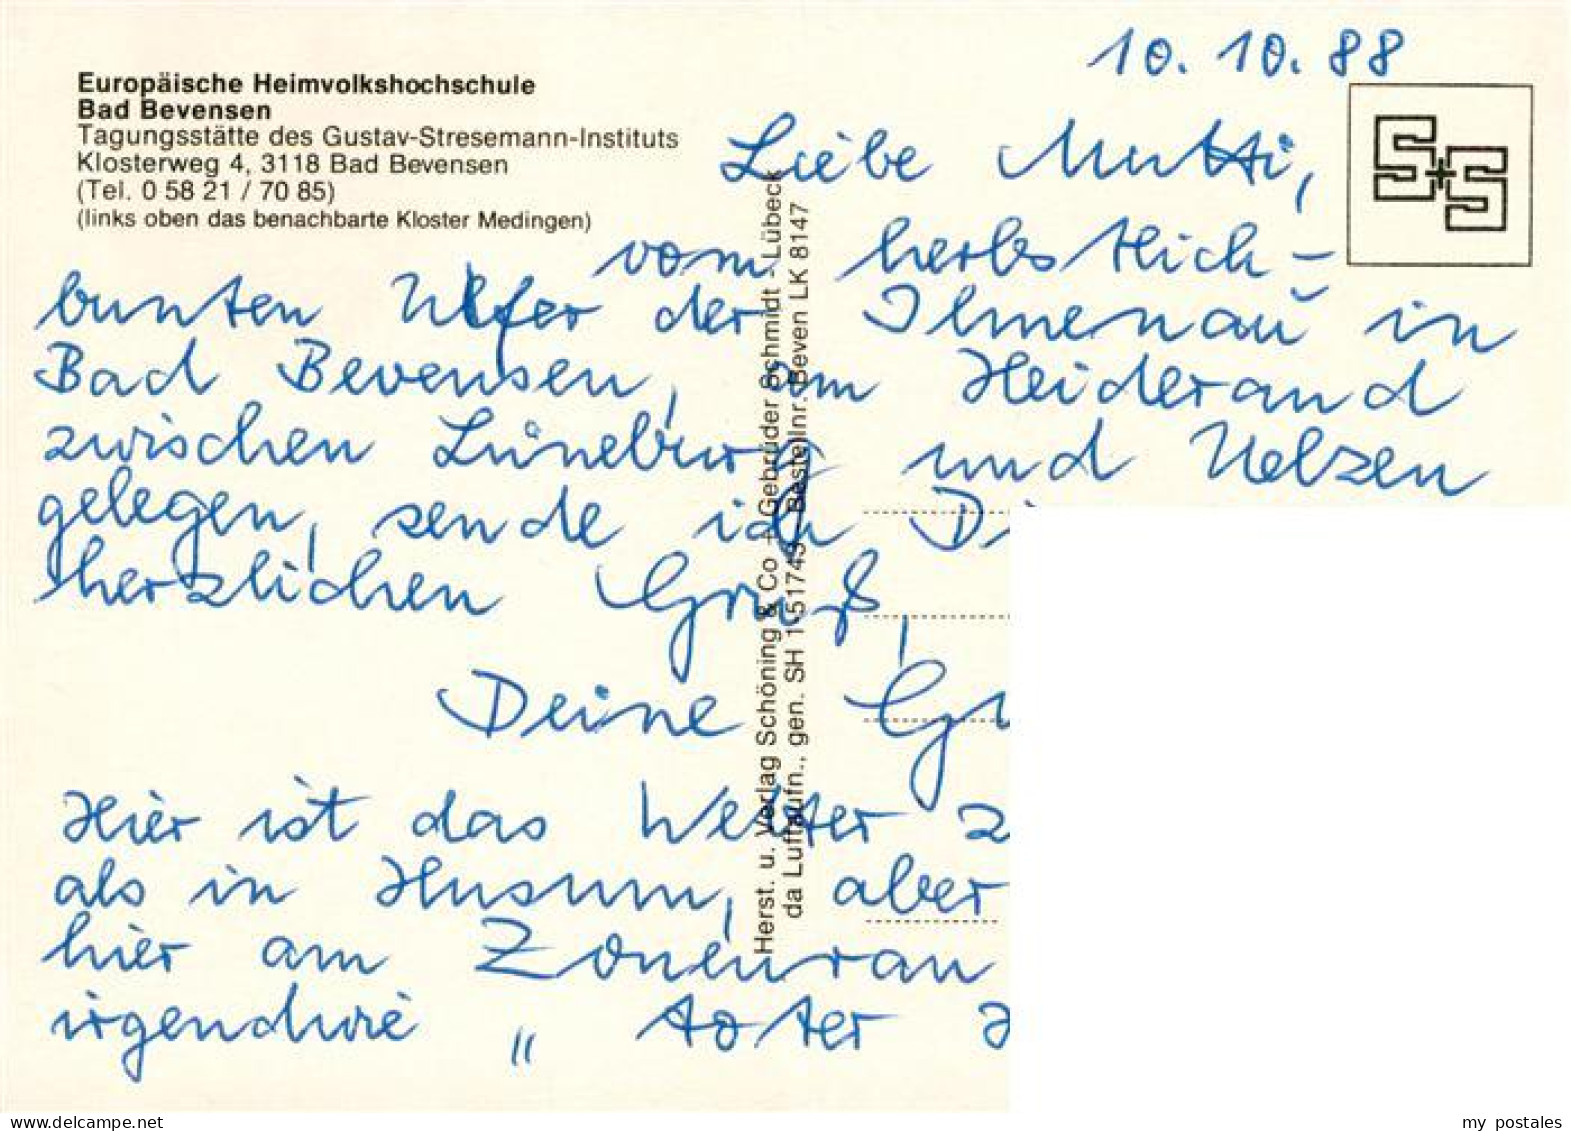 Europäische Heimvolkshochschule
Bad Bevensen
Tagungsstätte des Gustav-Stresemann-Instituts
Klosterweg 4, 3118 Bad Bevensen
(Tel. 0 58 21 / 70 85)
(links oben das benachbarte Kloster Medingen)
10. 10. 88
Liebe Mutti,
vom herbstlich-
bunten Ufer der Ilmenau in
Bad Bevensen, am Heiderand
zwischen Lüneburg und Uelzen
gelegen, sende ich Di
herzlichen Gruß,
Deine
Hier ist das Wetter
als in Husum, aber
hier am Zonenran
irgendwie „ toter
Herst. u. Verlag Schöning & Co + Gebrüder Schmidt - Lübeck
da Luftaufn., gen. SH 1-51743 Bestellnr. Beven LK 8147
S+S
delcampe.net
my_postales